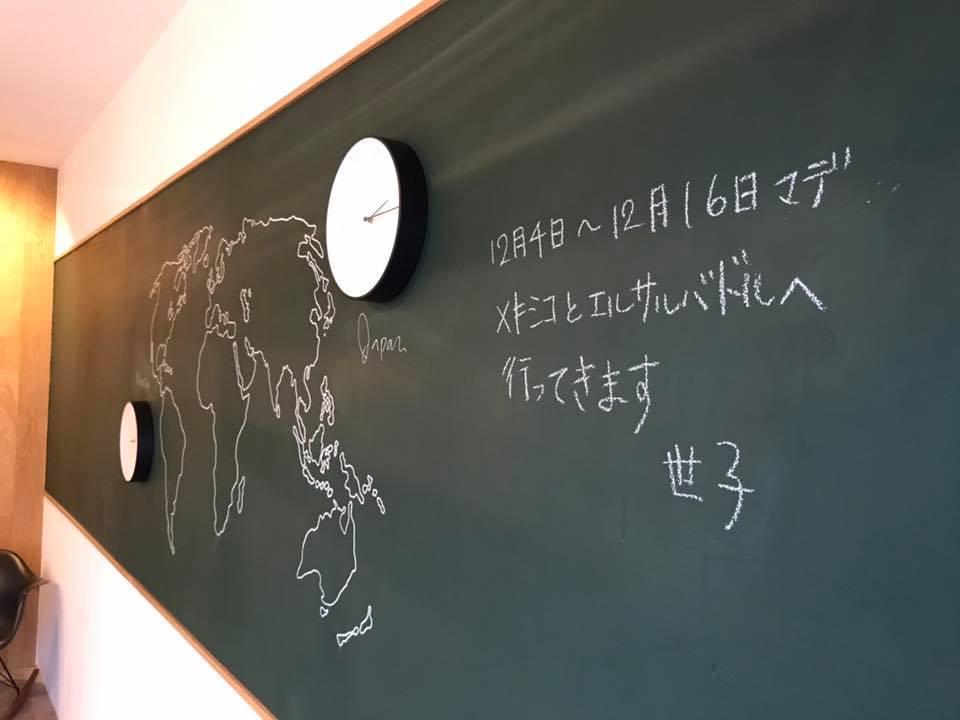 12月4日〜12月16日マデ
メキシコとエルサルバドルへ
行ってきます
世子
Japan